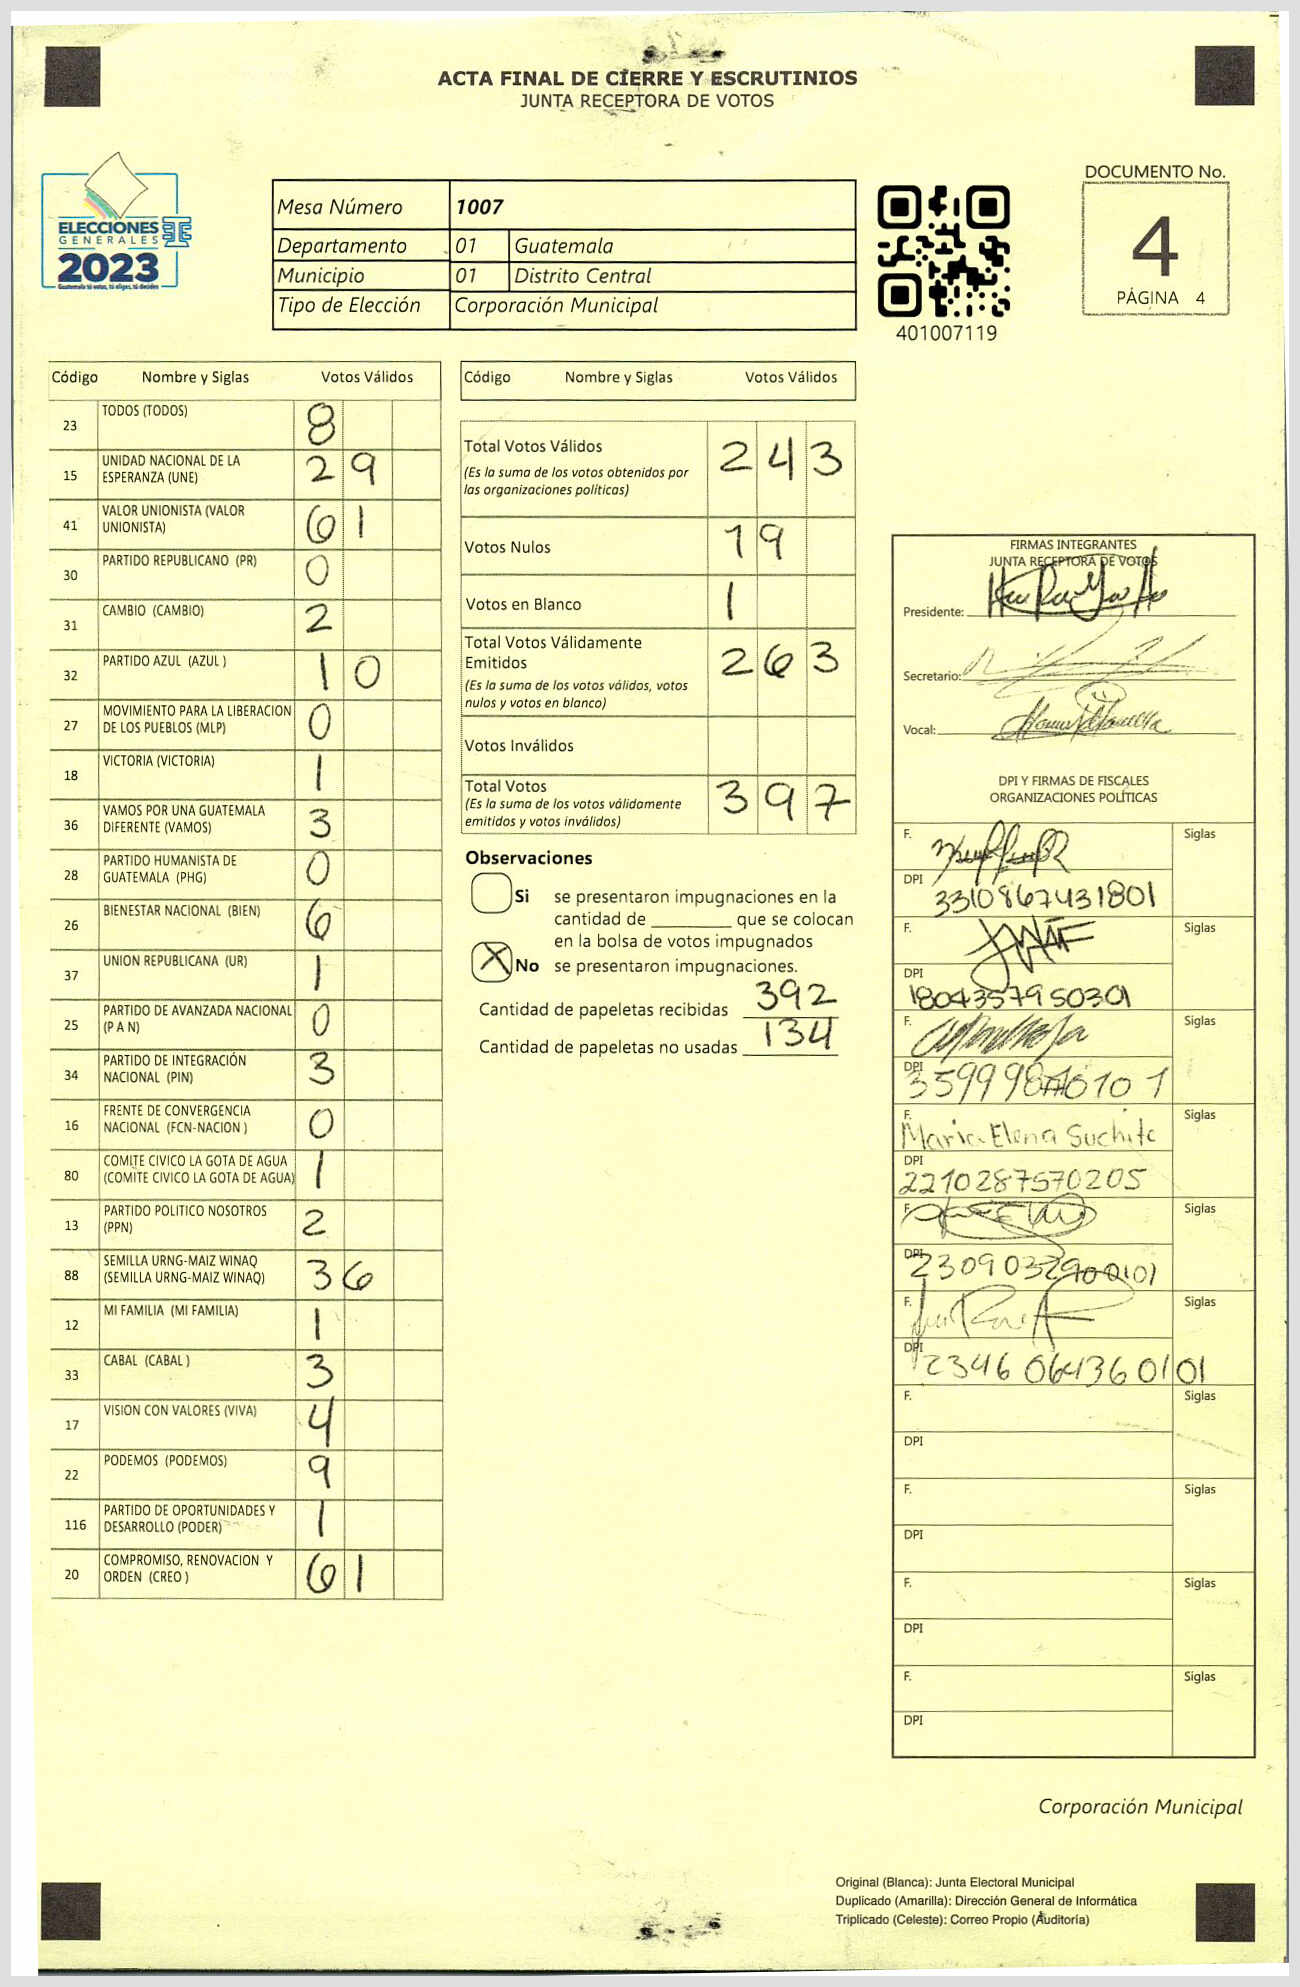 ACTA FINAL DE CIERRE Y ESCRUTINIOS
JUNTA RECEPTORA DE VOTOS
ELECCIONES
GENERALES
2023
Guatemala tú votas, tú eliges, tú decides
Mesa Número 1007
Departamento 01 Guatemala
Municipio 01 Distrito Central
Tipo de Elección Corporación Municipal
401007119
DOCUMENTO No.
4
PÁGINA 4
Código Nombre y Siglas Votos Válidos
23 TODOS (TODOS) 8
15 UNIDAD NACIONAL DE LA
ESPERANZA (UNE) 29
41 VALOR UNIONISTA (VALOR
UNIONISTA) 61
30 PARTIDO REPUBLICANO (PR) 0
31 CAMBIO (CAMBIO) 2
32 PARTIDO AZUL (AZUL ) 10
27 MOVIMIENTO PARA LA LIBERACION
DE LOS PUEBLOS (MLP) 0
18 VICTORIA (VICTORIA) 1
36 VAMOS POR UNA GUATEMALA
DIFERENTE (VAMOS) 3
28 PARTIDO HUMANISTA DE
GUATEMALA (PHG) 0
26 BIENESTAR NACIONAL (BIEN) 6
37 UNION REPUBLICANA (UR) 1
25 PARTIDO DE AVANZADA NACIONAL
(P A N) 0
34 PARTIDO DE INTEGRACIÓN
NACIONAL (PIN) 3
16 FRENTE DE CONVERGENCIA
NACIONAL (FCN-NACION ) 0
80 COMITE CIVICO LA GOTA DE AGUA
(COMITE CIVICO LA GOTA DE AGUA) 1
13 PARTIDO POLITICO NOSOTROS
(PPN) 2
88 SEMILLA URNG-MAIZ WINAQ
(SEMILLA URNG-MAIZ WINAQ) 36
12 MI FAMILIA (MI FAMILIA) 1
33 CABAL (CABAL ) 3
17 VISION CON VALORES (VIVA) 4
22 PODEMOS (PODEMOS) 9
116 PARTIDO DE OPORTUNIDADES Y
DESARROLLO (PODER) 1
20 COMPROMISO, RENOVACION Y
ORDEN (CREO ) 61
Código Nombre y Siglas Votos Válidos
Total Votos Válidos 243
(Es la suma de los votos obtenidos por
las organizaciones políticas)
Votos Nulos 19
Votos en Blanco 1
Total Votos Válidamente
Emitidos 263
(Es la suma de los votos válidos, votos
nulos y votos en blanco)
Votos Inválidos
Total Votos 397
(Es la suma de los votos válidamente
emitidos y votos inválidos)
Observaciones
Si se presentaron impugnaciones en la
cantidad de ________ que se colocan
en la bolsa de votos impugnados
X No se presentaron impugnaciones.
Cantidad de papeletas recibidas 392
Cantidad de papeletas no usadas 134
FIRMAS INTEGRANTES
JUNTA RECEPTORA DE VOTOS
Presidente:
Secretario:
Vocal:
DPI Y FIRMAS DE FISCALES
ORGANIZACIONES POLÍTICAS
F. Siglas
DPI 3310867431801
F. Siglas
DPI 1804357950301
F. Siglas
DPI
F. Maria Elena Suchite Siglas
DPI 2210287570205
F. Siglas
DPI
F. Siglas
DPI 2346064360101
F. Siglas
DPI
F. Siglas
DPI
F. Siglas
DPI
F. Siglas
DPI
Corporación Municipal
Original (Blanca): Junta Electoral Municipal
Duplicado (Amarilla): Dirección General de Informática
Triplicado (Celeste): Correo Propio (Auditoría)